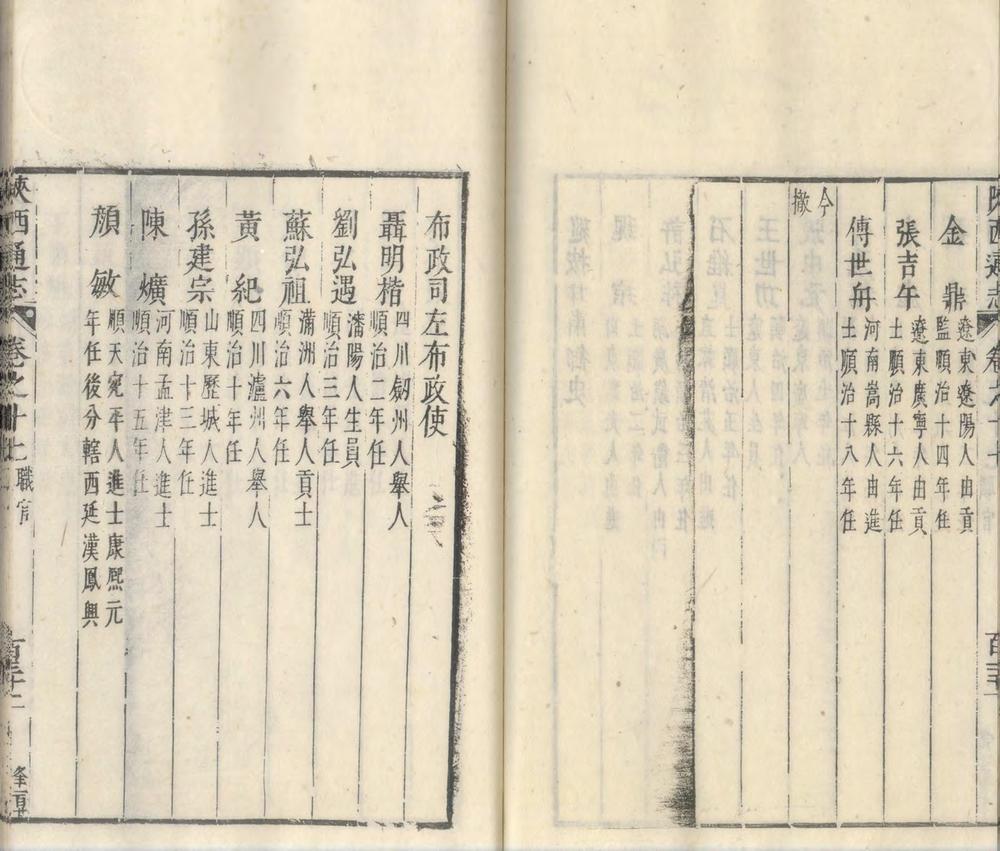 陝西通志 卷之十七
金鼎 遼東遼陽人由貢
監順治十四年任
張吉午 遼東廣寧人由貢
士順治十六年任
傅世舟 河南嵩縣人由進
士順治十八年任
今撤
布政司左布政使
聶明楷 四川劔州人舉人
順治二年任
劉弘遇 瀋陽人生員
順治三年任
蘇弘祖 滿洲人舉人貢士
順治六年任
黃紀 四川瀘州人舉人
順治十年任
孫建宗 山東歷城人進士
順治十三年任
陳爌 河南孟津人進士
順治十五年任
顏敏 順天宛平人進士康熙元
年任後分轄西延漢鳳興
陝西通志 卷之十七 職官 百三十二